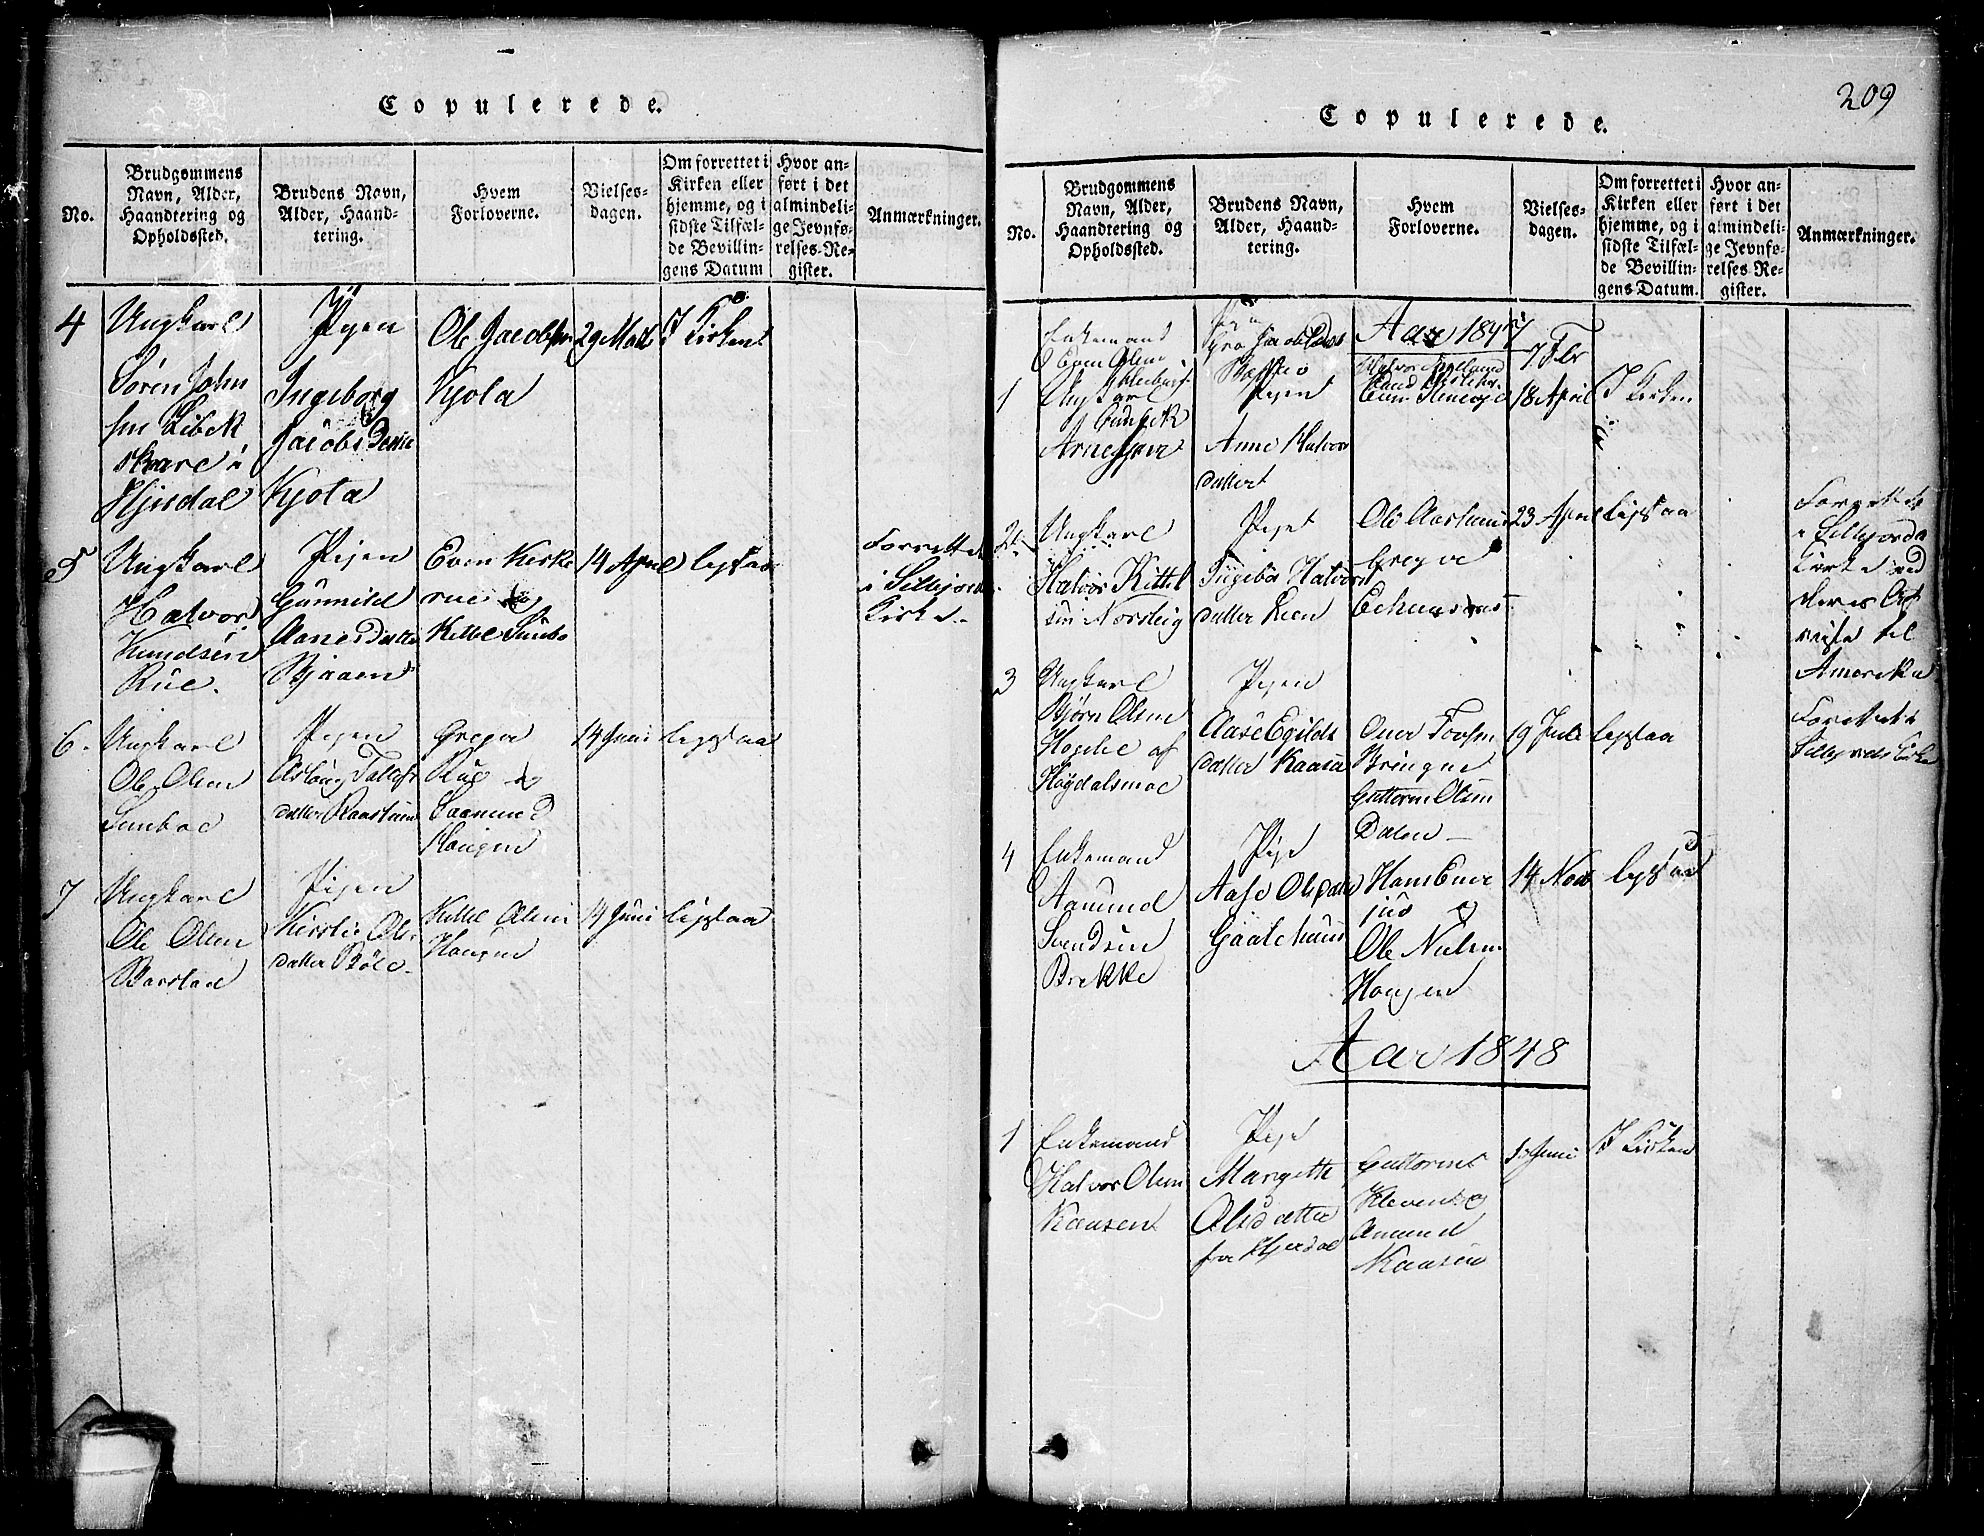 Copulerede.
No.
Brudgommens
Navn, Alder,
Haandtering og
Opholdssted.
Brudens Navn,
Alder, Haand-
tering.
Hvem
Forloverne.
Vielses-
dagen.
Om forrettet i
Kirken eller
hjemme, og i
sidste Tilfæl-
de Bevillin-
gens Datum
Hvor an-
ført i det
almindeli-
ge Jevnfø-
relses-Re-
gister.
Anmærkninger.
4
Ungkarl
Søren John
sen Libek
skare i
Hjerdal
Pigen
Ingeborg
Jacobs Datter
Kjota
Ole Jacobsen
Kjota
29 Mai
I Kirken
5
Ungkarl
Halvor
Knudsen
Rue.
Pigen
Gunnild
Aanes Datter
Bjaaen
Even Kirke
rue og
Kittel Sunbø
14 April
ligesaa
Forrettet
i Sillejords
Kirke.
6.
Ungkarl
Ole Olsen
Sunboe
Pigen
Aslaug Tallefs
datter Raastuen
Gregar
Rue og
Saamund
Haugen
14 Juni
ligesaa
7
Ungkarl
Ole Olsen
Barstad
Pigen
Kirstie Ols
datter Bøle.
Kittel Olsen
Haugen
14 Juni
ligesaa
209
Copulerede.
No.
Brudgommens
Navn, Alder,
Haandtering og
Opholdssted.
Brudens Navn,
Alder, Haand-
tering.
Hvem
Forloverne.
Vielses-
dagen.
Om forrettet i
Kirken eller
hjemme, og i
sidste Tilfæl-
de Bevillin-
gens Datum.
Hvor an-
ført i det
almindeli-
ge Jevnfø-
relses Re-
gister.
Anmærkninger.
Aar 1847
Enkemand
Even Olsen
7 Feb
1
Ungkarl
Arnesen
Pigen
Anne Halvor
datter
18 April
I Kirken
2.
Ungkarl
Halvor Kittel
sen Norsteig
Pige
Ingebor Halvors
datter Leen
Ole Aastuene
Gregar
23 April
ligesaa
Forrettet
i Sillejords
Kirke ved
deres Af
reise til
Amerika
3
Ungkarl
Bjørn Olsen
Hoglie af
Høgdalsmoe
Pigen
Aase Egilds
datter Kaasa
Tovsen
Bringen
Guttorm Olsen
Dalen
19 Juli
ligesaa
Forrettet i
Sillejords Kirke
4
Enkemand
Aamund
Svendsen
Brekke
Pige
Aase Olsdatter
Gaatehuus
Hans
og
Ole Nielsen
Haugen
14 Nov
ligesaa
Aar 1848
1
Enkemand
Halvor Olsen
Kaasen
Pige
Margethe
Olsdatter
fra Hjerdal
Guttorm
Kleven og
Amund
Kaasen
Juni
I Kirken